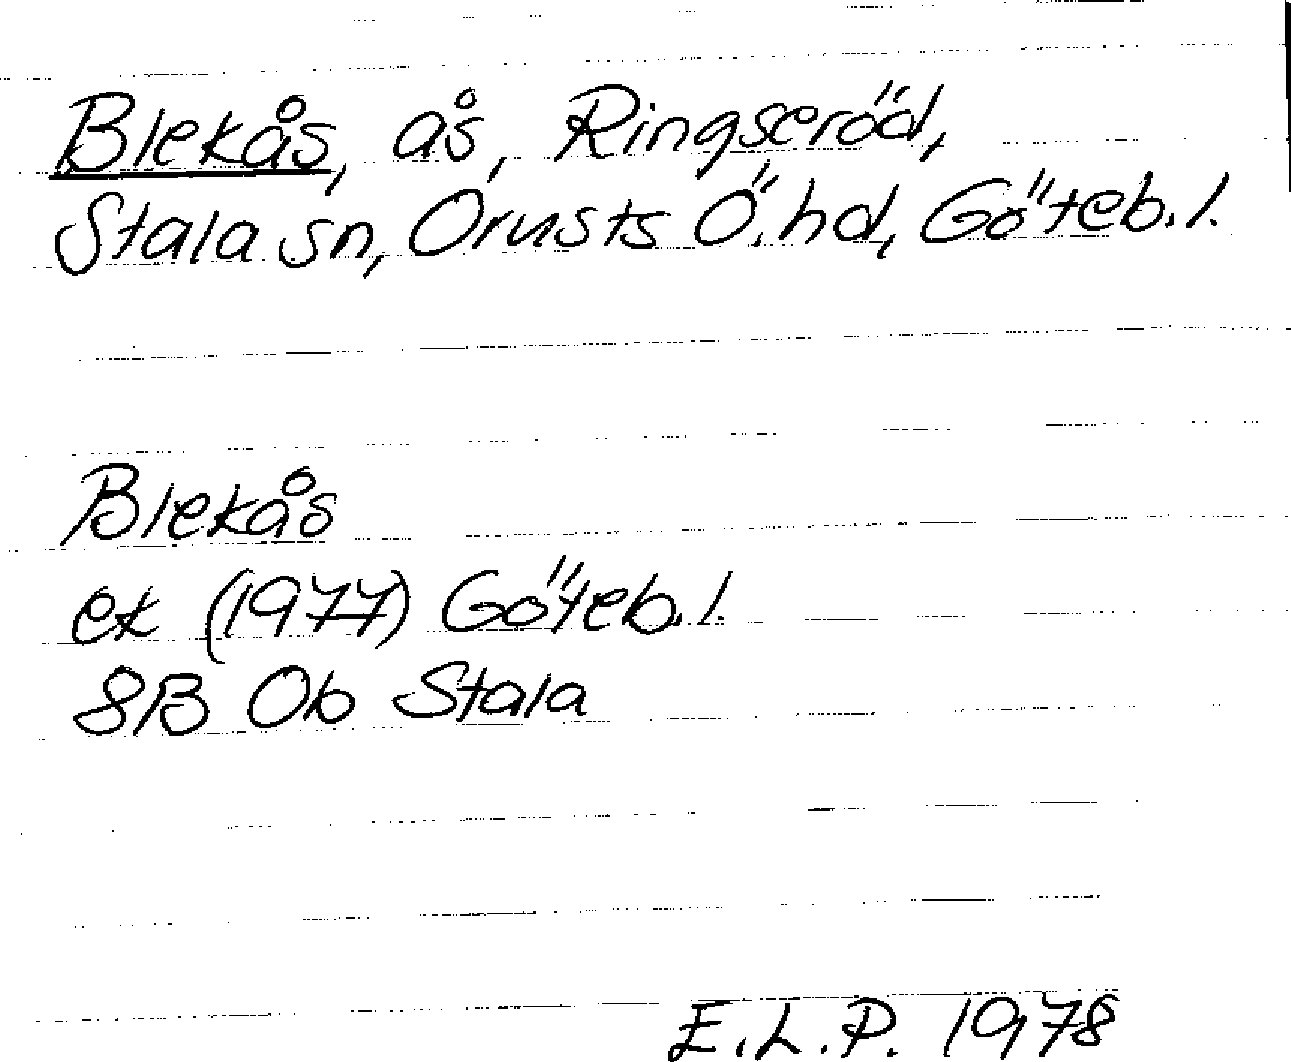 Blekås, ås, Ringseröd,
Stala sn, Orusts Ö. hd, Göteb. l.
Blekås
ek (1977) Göteb. l.
8B 0b Stala
E.L.P. 1978